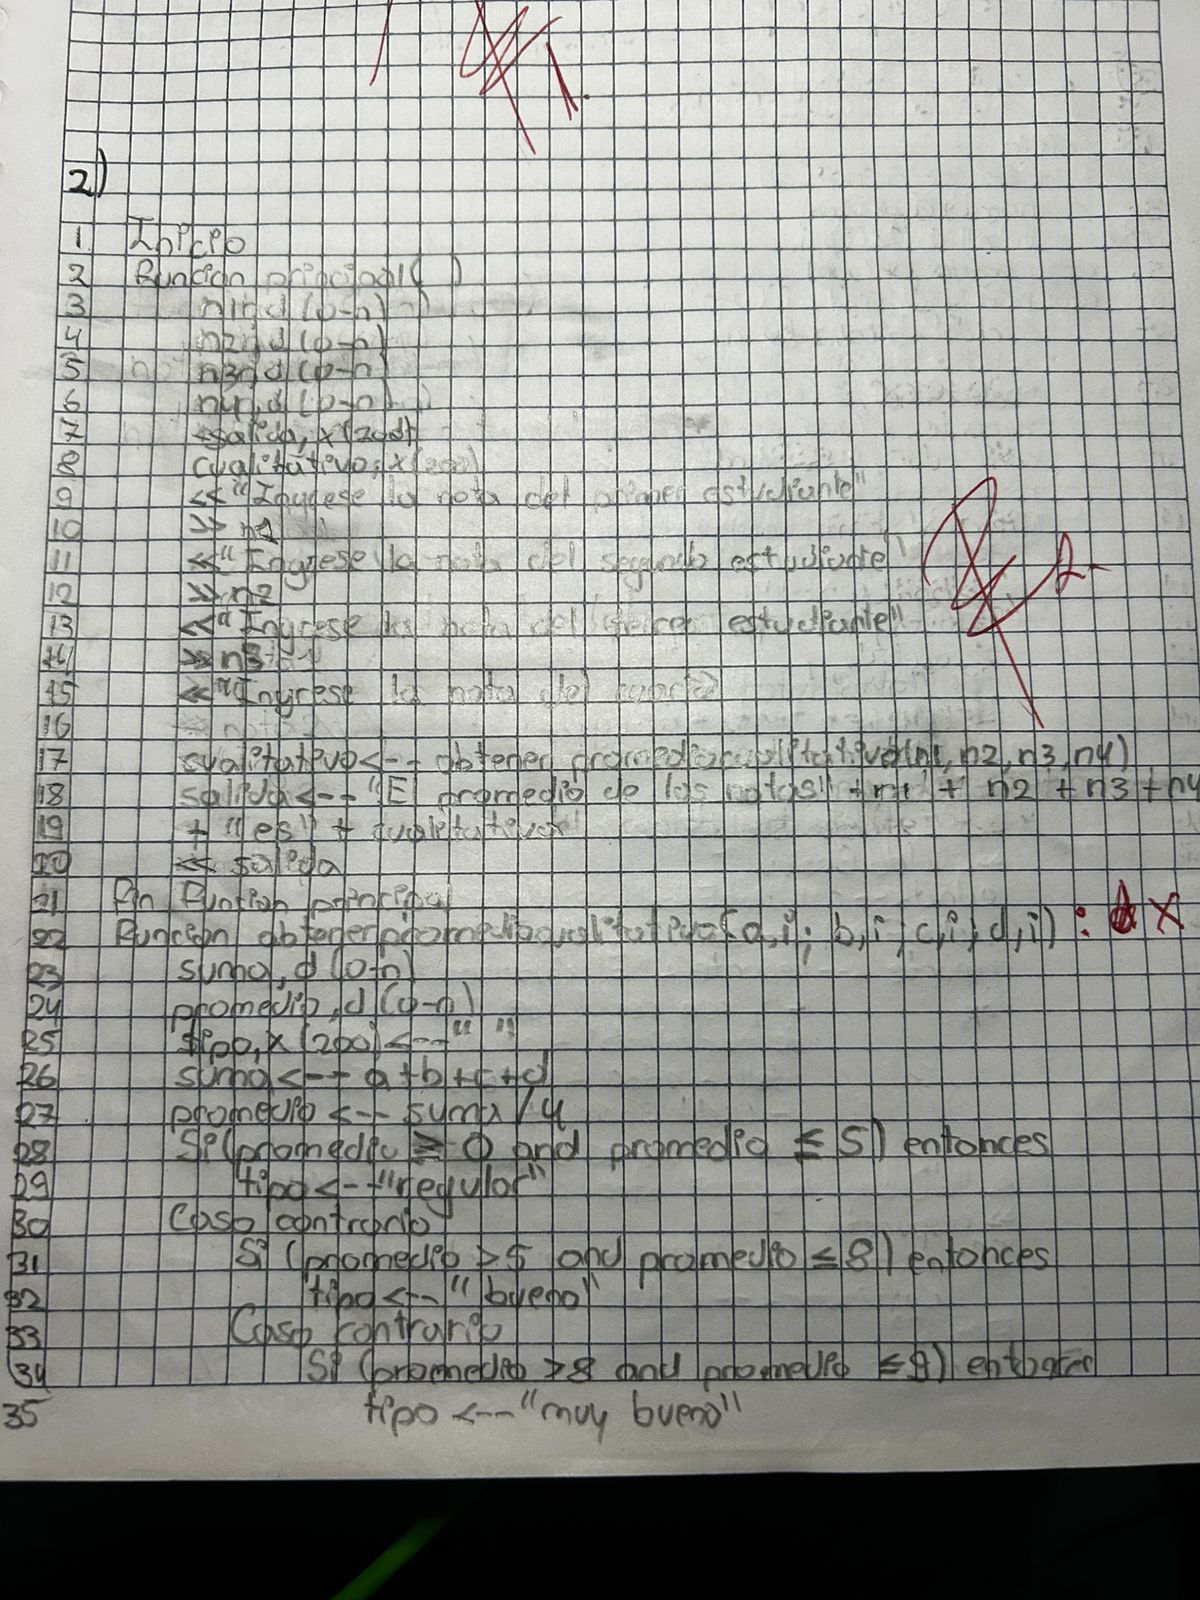 2)
1 Inicio
2 Funcion principal( )
3 n1, d (0-n)
4 n2, d (0-n)
5 n3, d (0-n)
6 n4, d (0-n)
7 salida, x(200)
8 cualitativo, x(200)
9 << "Ingrese la nota del primer estudiante"
10 >> n1
11 << "Ingrese la nota del segundo estudiante"
12 >> n2
13 << "Ingrese la nota del tercer estudiante"
14 >> n3
15 << "Ingrese la nota del cuarto
16
17 cualitativo <-- obtener promediocualitativo(n1, n2, n3, n4)
18 salida <-- "El promedio de las notas" + n1 + n2 + n3 + n4
19 + "es" + cualitativo
20 << salida
21 Fin Funcion principal
22 Funcion obtenerpromediocualitativo(a,i; b,i; c,i; d,i) : x
23 suma, d (0-n)
24 promedio, d (0-n)
25 tipo, x (200) <-- " "
26 suma <-- a+b+c+d
27 promedio <-- suma / 4
28 Si (promedio ≥ 0 and promedio ≤ 5) entonces
29 tipo <-- "regular"
30 Caso contrario
31 Si (promedio > 5 and promedio ≤ 8) entonces
32 tipo <-- "bueno"
33 Caso contrario
34 Si (promedio > 8 and promedio ≤ 9) entonces
35 tipo <-- "muy bueno"